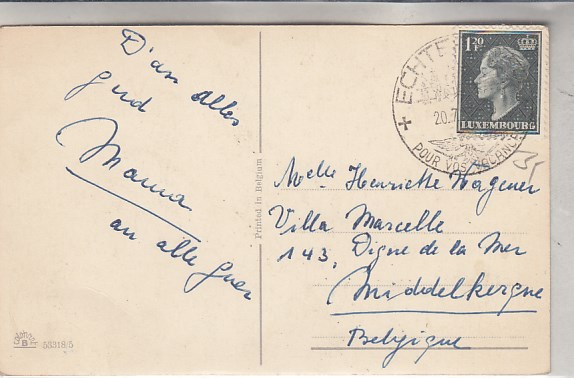 D'an alles
gud
Mama
an alle guer
Printed in Belgium
53318/5
ECHTE
20.7
POUR VOS VACANC
1F20
LUXEMBOURG
Melle Henriette Wagener
Villa Marcelle
143, Digne de la Mer
Middelkerque
Belgique